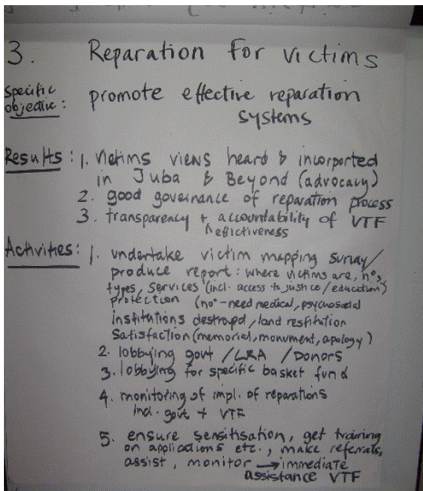 3. Reparation for victims
specific objective: promote effective reparation
systems
Results: 1. victims views heard & incorported
in Juba & Beyond (advocacy)
2. good governance of reparation process
3. transparency + accountability of VTF
effectiveness
Activities: 1. undertake victim mapping survay/
produce report: where victims are, nos,
types, services (incl. access to justice/education)
protection (no - need medical, psychosocial
institutions destroyed, land restitution
satisfaction (memorial, monument, apology)
2. lobbying govt / LRA / Donors
3. lobbying for specific basket fund
4. monitoring of impl. of reparations
incl. govt + VTF
5. ensure sensitisation, get training
on applications etc., make referrals,
assist, monitor → immediate
assistance VTF